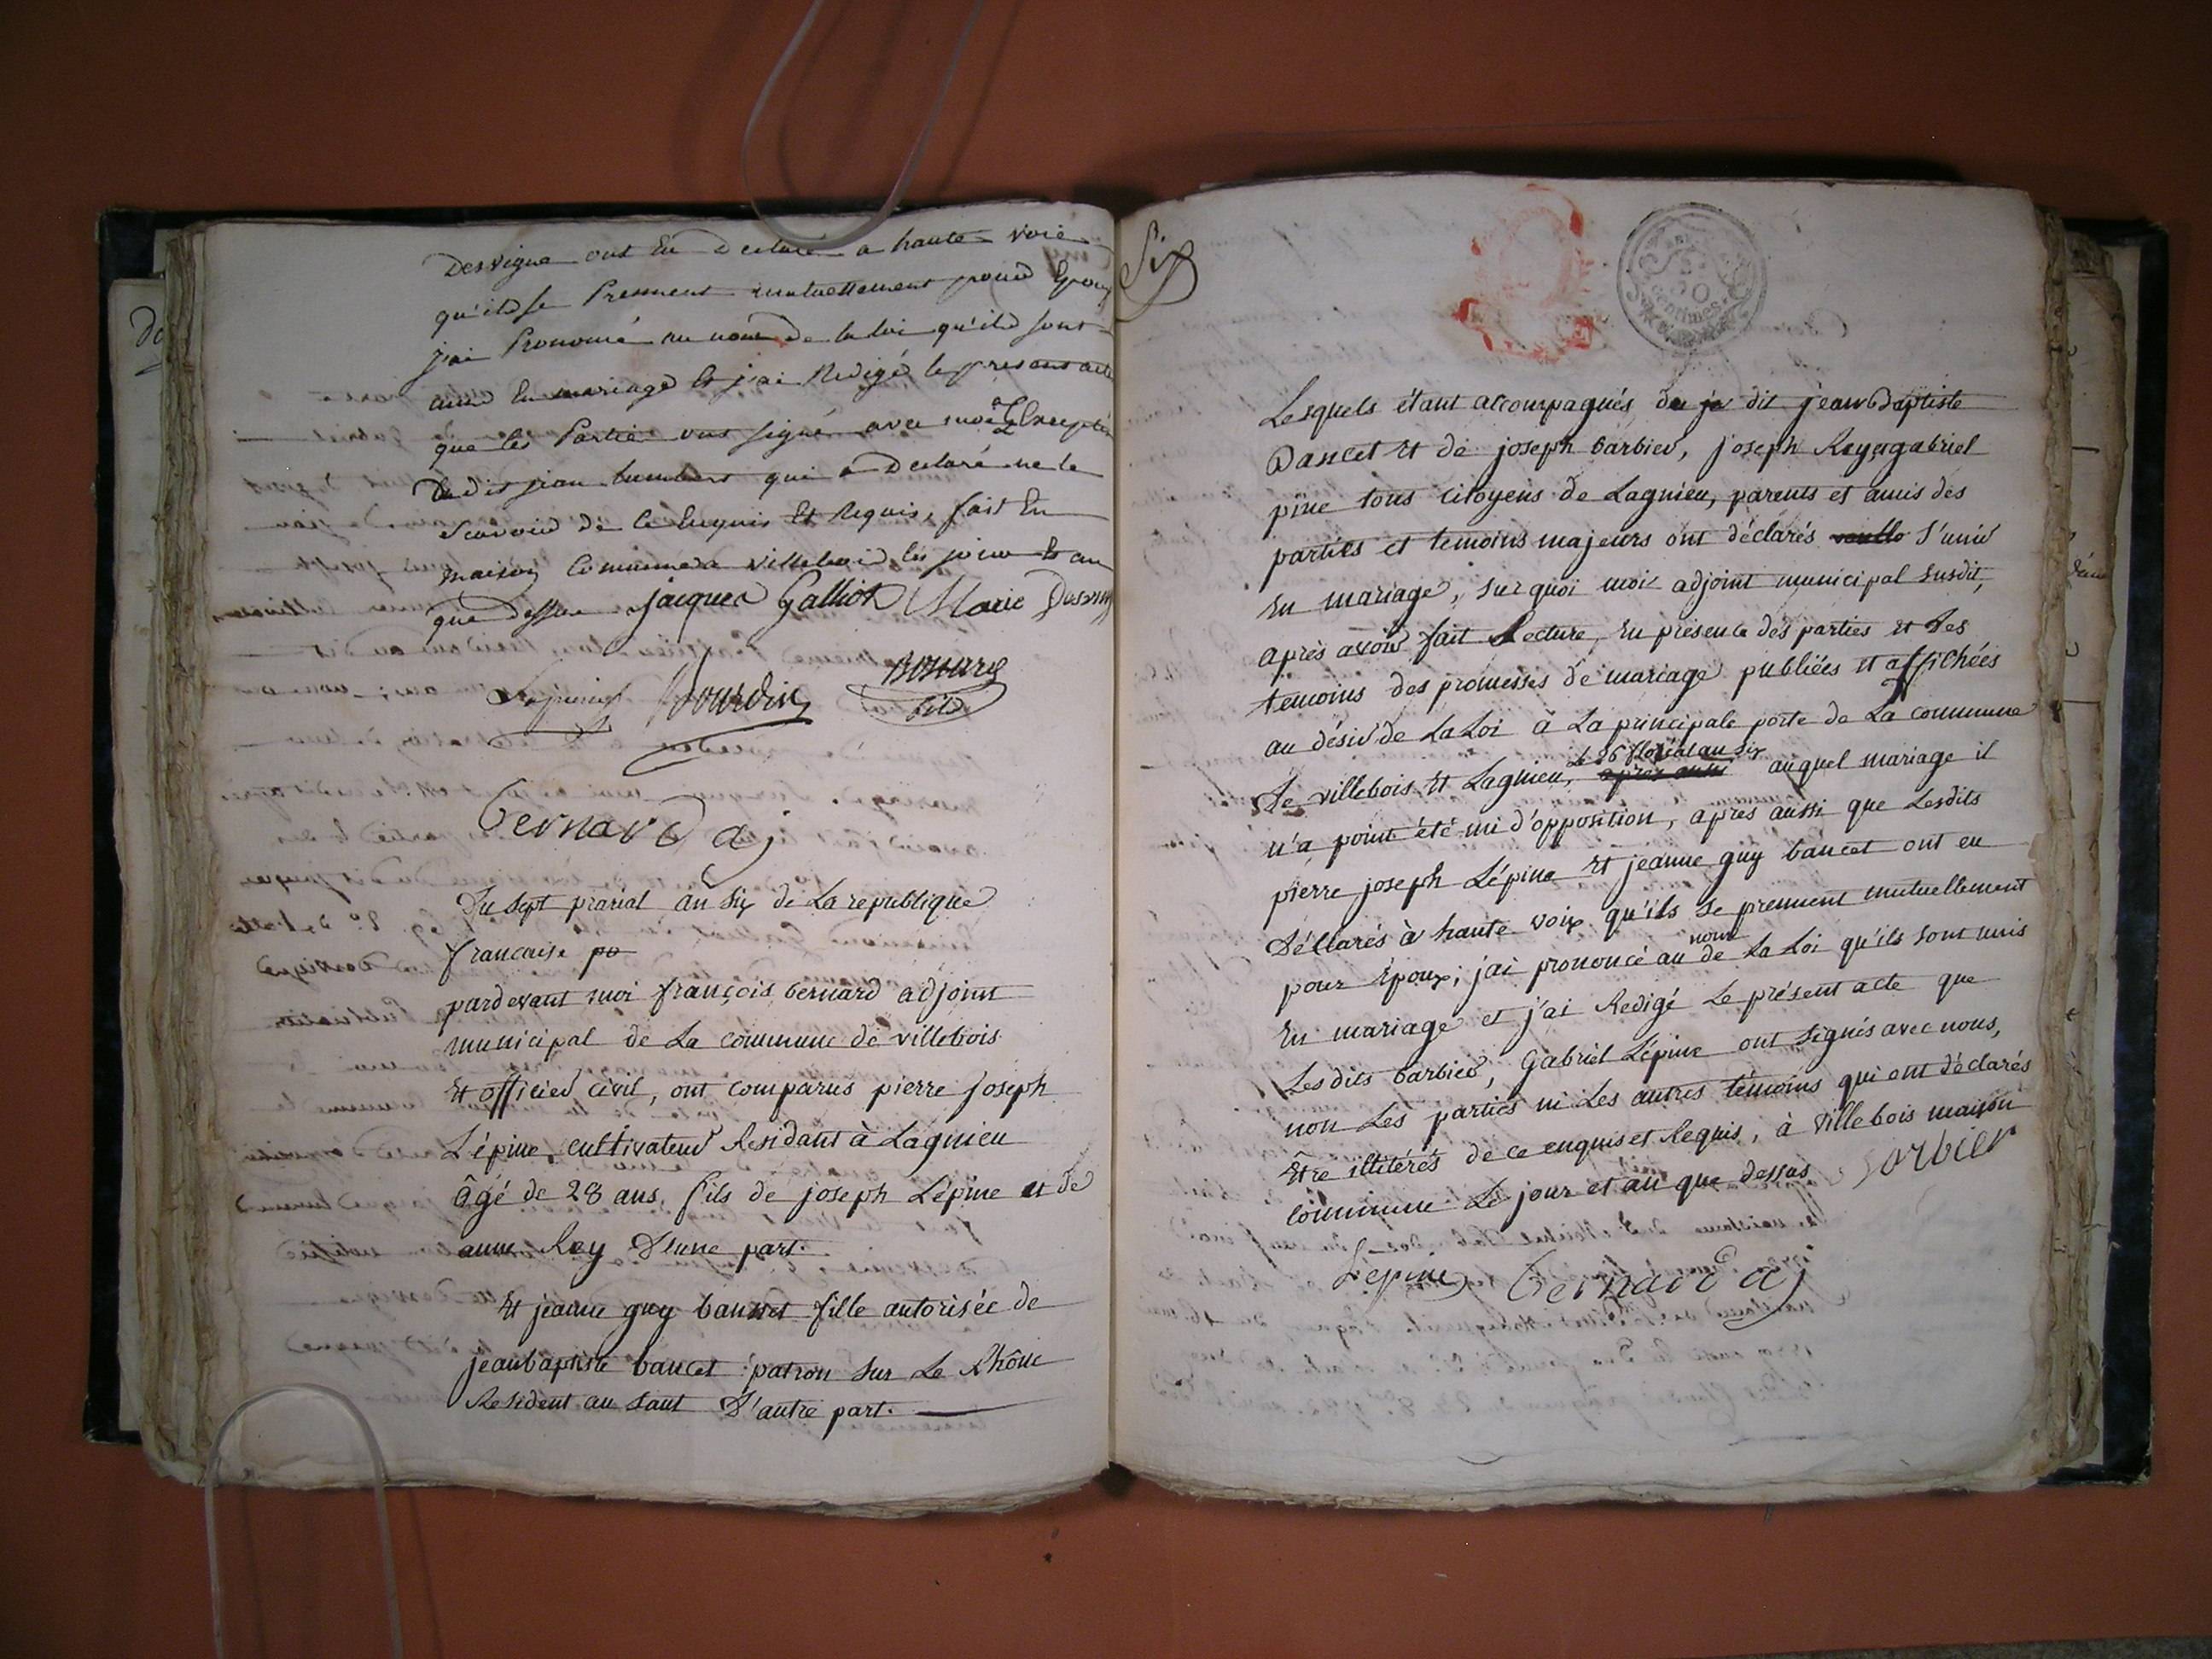 Desvigne ont Eu Declaré a haute voix
qu'ild se Prennent mutuellement pour Epoux
j'ai Prononcé au nom de la loi qu'ild sont
unid En mariage Et j'ai Redigé le present acte
que les Partie ont signé avec moi a L'Exception
du dit jean humbert qui a Declaré ne le
scavoir de ce Enquis Et Requis, fait En
maison Commune a villeboid les jour Et an
que dessus jacques Galliot Marie Desvig
Lepine Bourdin
fild
Bernard aj
Du sept prarial an six de La republique
francaise po
pardevant moi françois bernard adjoint
municipal de La commune de villebois
Et officier civil, ont comparus pierre joseph
L'épine, cultivateur Residant à Lagnieu
âgé de 28 ans, fils de joseph Lépine et de
anne Rey D'une part.
Et jeanne guy bancet fille autorisée de
jeanbaptiste bancet patron sur Le Rhône
Resident au saut D'autre part.
Six
50
centimes
Lesquels étant accompagnés du je dit jean Baptiste
Bancet Et de joseph barbier, joseph Rey, gabriel
pine tous citoyens de Lagnieu, parents et amis des
parties et temoins majeurs ont déclarés voullo s'unir
En mariage, sur quoi moi adjoint municipal susdit,
après avoir fait Lecture, En présence des parties Et Des
temoins des promesses de mariage publiées Et affichées
au désir de La Loi à La principale porte de La commune
Le 26 floréal an six
De villebois Et Lagnieu, après aussi auquel mariage il
n'a point été mi d'opposition, après aussi que Lesdits
pierre joseph Lépine Et jeanne guy bancet ont eu
Déclarés à haute voix qu'ils se prennent mutuellement
nom
pour Epoux; j'ai prononcé au de La Loi qu'ils sont unis
En mariage et j'ai Redigé Le présent acte que
Les dits barbier, Gabriel Lépine ont signés avec nous,
non Les parties ni Les autres témoins qui ont déclarés
Etre illitérés de ce enquis et Requis, à villebois maison
commune Le jour et an que dessus barbier
Lepine Bernard aj